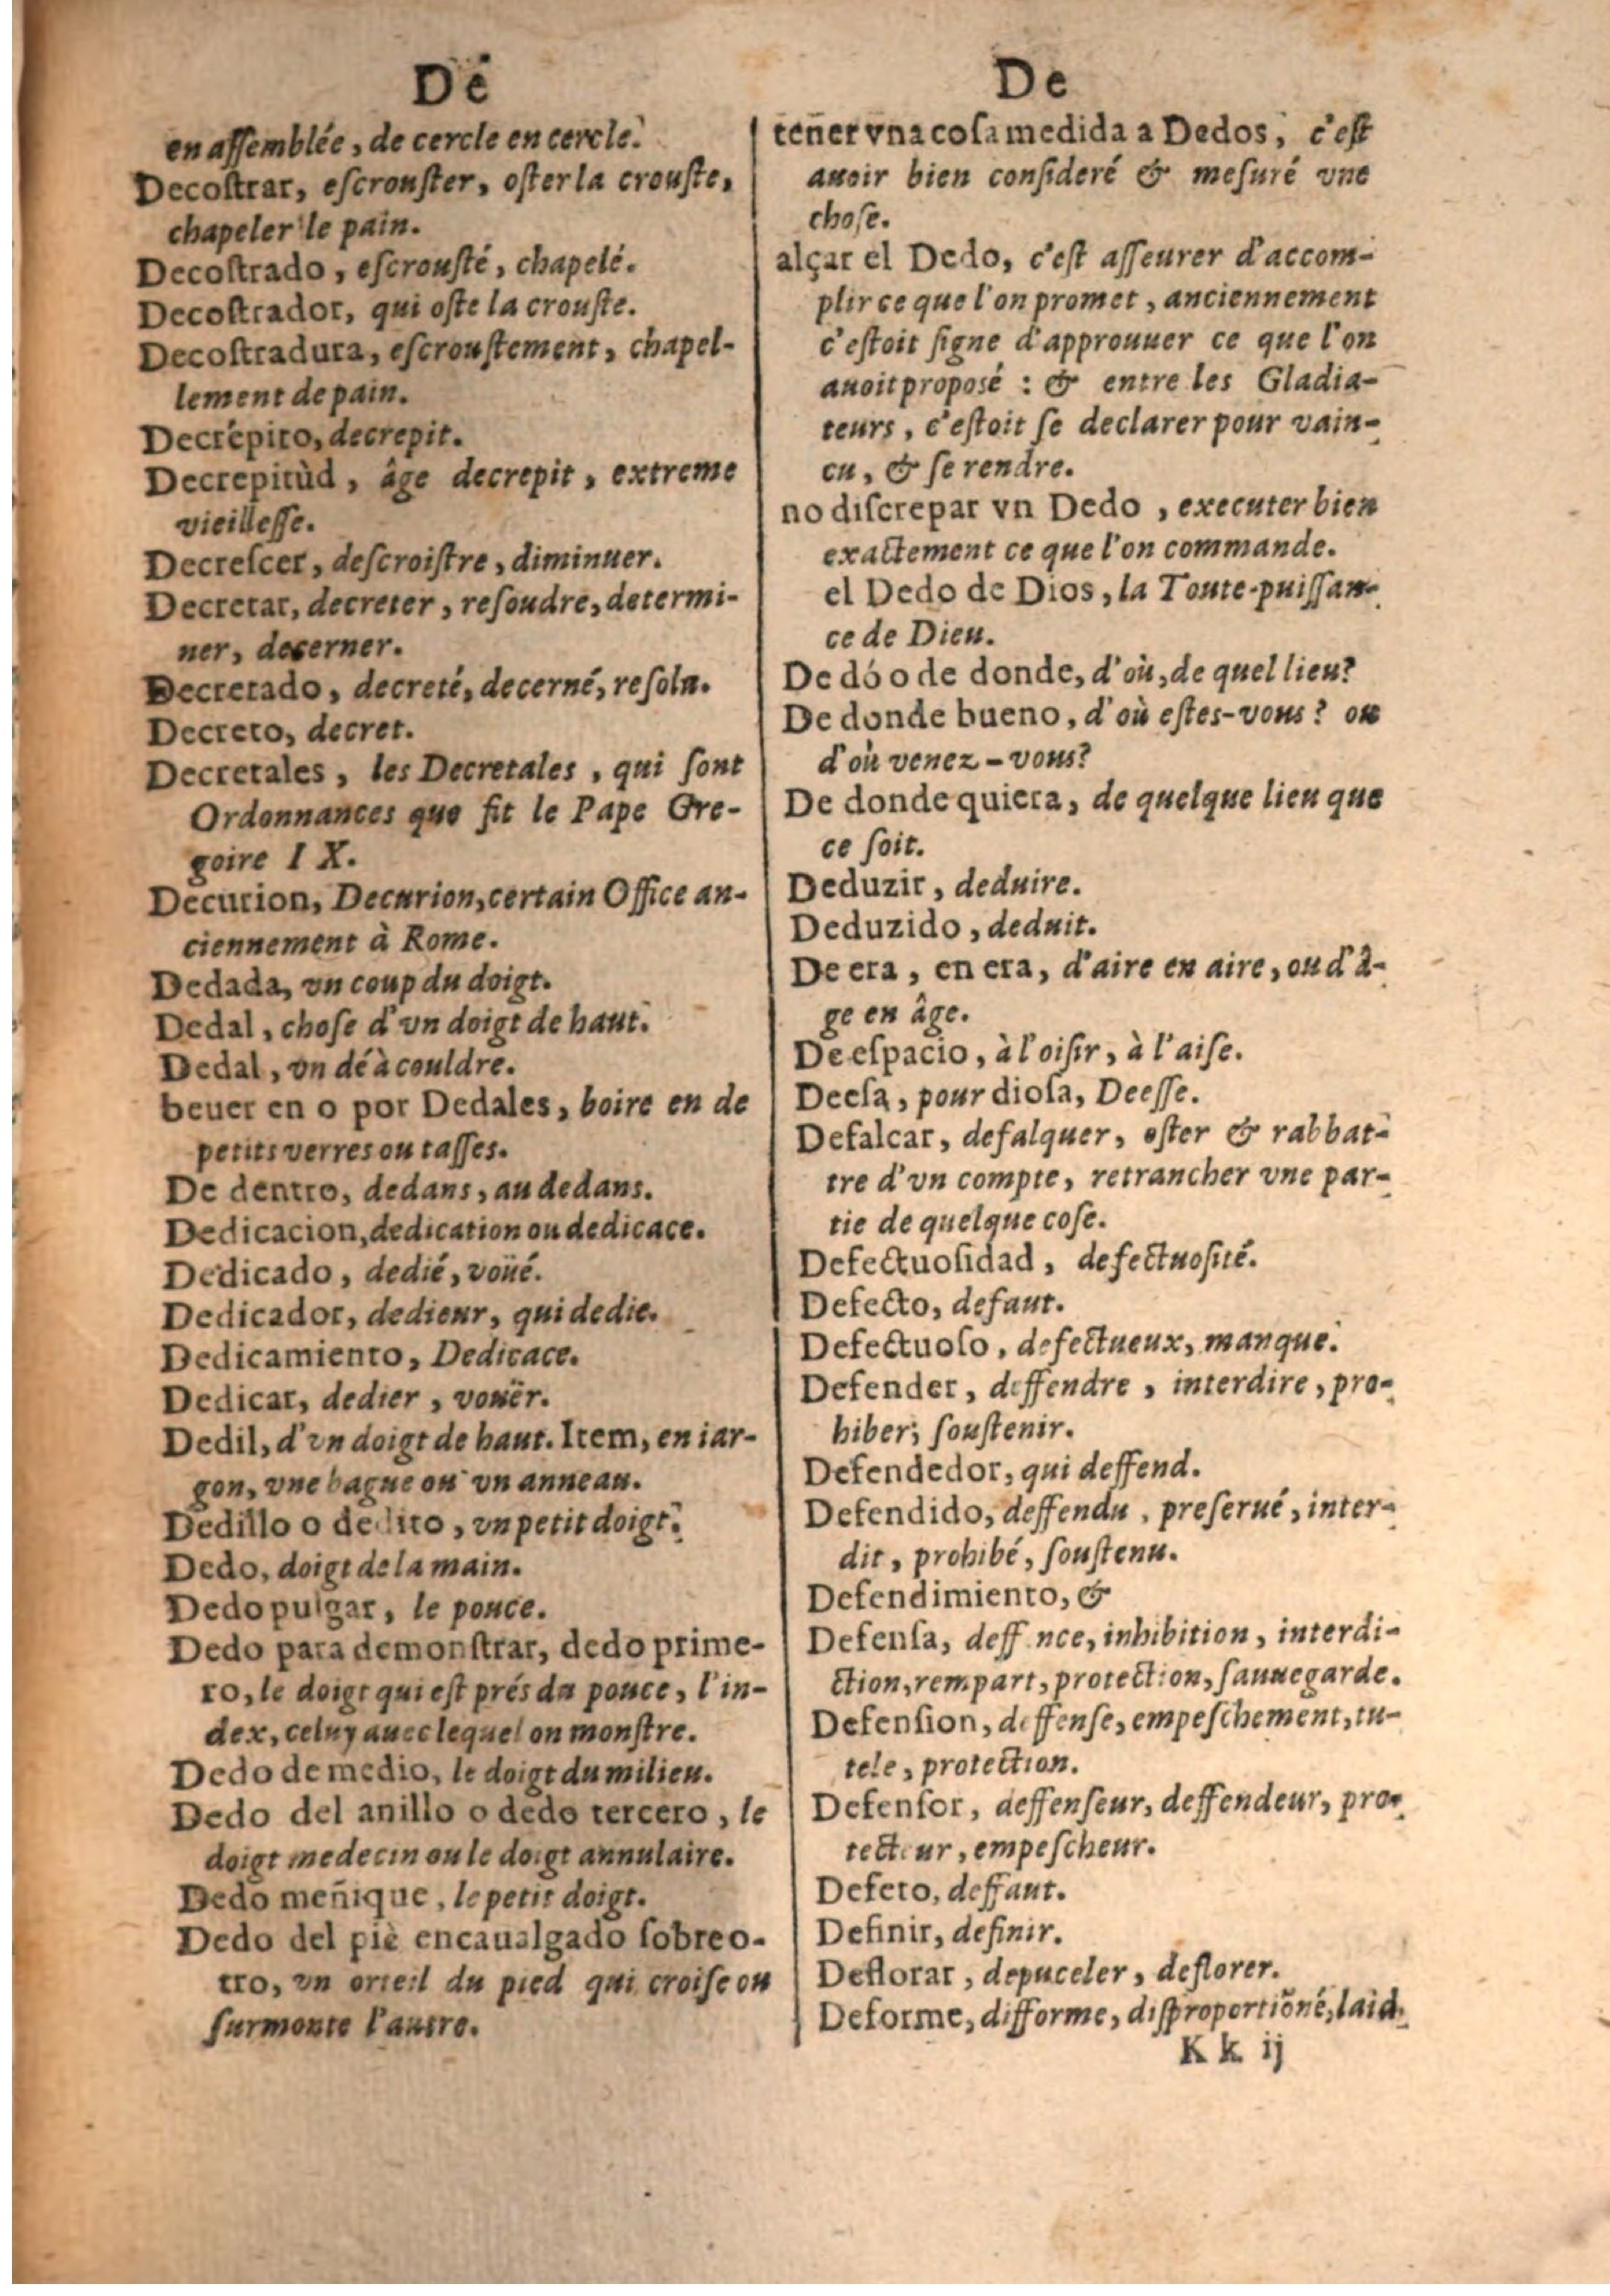 Dé
en assemblée, de cercle en cercle.
Decoſtrar, eſcrouſter, oſter la crouſte,
chapeler le pain.
Decoſtrado, eſcrouſté, chapelé.
Decoſtrador, qui oſte la crouſte.
Decoſtradura, eſcrouſtement, chapel-
lement de pain.
Decrépito, decrepit.
Decrepitùd, âge decrepit, extreme
vieilleſſe.
Decreſcer, deſcroiſtre, diminuer.
Decretar, decreter, reſoudre, determi-
ner, decerner.
Decretado, decreté, decerné, reſolu.
Decreto, decret.
Decretales, les Decretales, qui ſont
Ordonnances que fit le Pape Gre-
goire I X.
Decurion, Decurion, certain Office an-
ciennement à Rome.
Dedada, vn coup du doigt.
Dedal, choſe d'vn doigt de haut.
Dedal, vn dé à couldre.
beuer en o por Dedales, boire en de
petits verres ou taſſes.
De dentro, dedans, au dedans.
Dedicacion, dedication ou dedicace.
Dedicado, dedié, voüé.
Dedicador, dedieur, qui dedie.
Dedicamiento, Dedicace.
Dedicar, dedier, vouër.
Dedil, d'vn doigt de haut. Item, en iar-
gon, vne bague ou vn anneau.
Dedillo o dedito, vn petit doigt.
Dedo, doigt de la main.
Dedo pulgar, le pouce.
Dedo para demonſtrar, dedo prime-
ro, le doigt qui est prés du pouce, l'in-
dex, celuy auec lequel on monſtre.
Dedo de medio, le doigt du milieu.
Dedo del anillo o dedo tercero, le
doigt medecin ou le doigt annulaire.
Dedo meñique, le petit doigt.
Dedo del piè encaualgado ſobre o-
tro, vn orteil du pied qui croiſe ou
ſurmonte l'autre.
De
tener vna coſa medida a Dedos, c'eſt
auoir bien conſideré & meſuré vne
choſe.
alçar el Dedo, c'eſt aſſeurer d'accom-
plir ce que l'on promet, anciennement
c'eſtoit ſigne d'approuuer ce que l'on
auoit proposé : & entre les Gladia-
teurs, c'eſtoit ſe declarer pour vain-
cu, & ſe rendre.
no diſcrepar vn Dedo, executer bien
exactement ce que l'on commande.
el Dedo de Dios, la Toute-puiſſan-
ce de Dieu.
De dó o de donde, d'où, de quel lieu?
De donde bueno, d'où eſtes-vous? ou
d'où venez-vous?
De donde quiera, de quelque lieu que
ce ſoit.
Deduzir, deduire.
Deduzido, deduit.
De era, en era, d'aire en aire, ou d'â-
ge en âge.
De eſpacio, à l'oiſir, à l'aiſe.
Deeſa, pour dioſa, Deeſſe.
Defalcar, defalquer, oſter & rabbat-
tre d'vn compte, retrancher vne par-
tie de quelque coſe.
Defectuoſidad, defectuoſité.
Defecto, defaut.
Defectuoſo, defectueux, manque.
Defender, deffendre, interdire, pro-
hiber, ſouſtenir.
Defendedor, qui deffend.
Defendido, deffendu, preſerué, inter-
dit, prohibé, ſouſtenu.
Defendimiento, &
Defenſa, deff nce, inhibition, interdi-
ction, rempart, protection, ſauuegarde.
Defenſion, deffenſe, empeſchement, tu-
tele, protection.
Defenſor, deffenſeur, deffendeur, pro-
tecteur, empeſcheur.
Defeto, deffaut.
Definir, definir.
Deflorar, depuceler, deflorer.
Deforme, difforme, diſproportiõné, laid.
K k ij